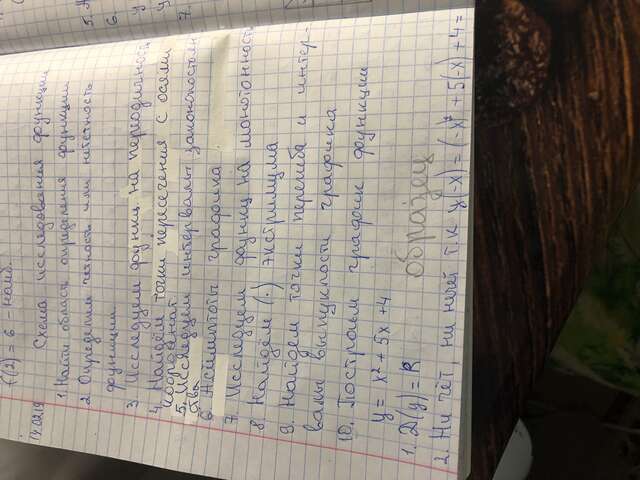 f(2) = 6 - наиб.
14.02.19 Схема исследования функции
1. Найти область определения функции
2. Определим чётность или нечётность
функции
3. Исследуем функц. на периодичность
4. Найдём точки пересечения с осями
координат
5. Исследуем интервалы законопостоян
ства
6. Асимптоты графика
7. Исследуем функц на монотонность
8. Найдём (·) экстримума
9. Найдём точки перегиба и интер-
валы выпуклости графика
10. Построим график функции
y = x² + 5x + 4
1. D(y) = R образец
2. Ни чёт, ни нечёт т.к y(-x) = (-x)² + 5(-x) + 4 =
5.
6.
y
y
7.